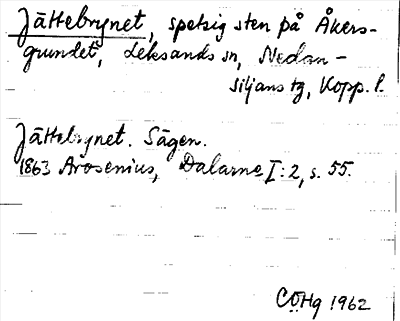 Jättebrynet, spetsig sten på Åkers-
grundet, Leksands sn, Nedan-
siljans tg, Kopp. l.
Jättebrynet. Sägen.
1863 Arosenius, Dalarne I:2, s. 55.
CÖHg 1962